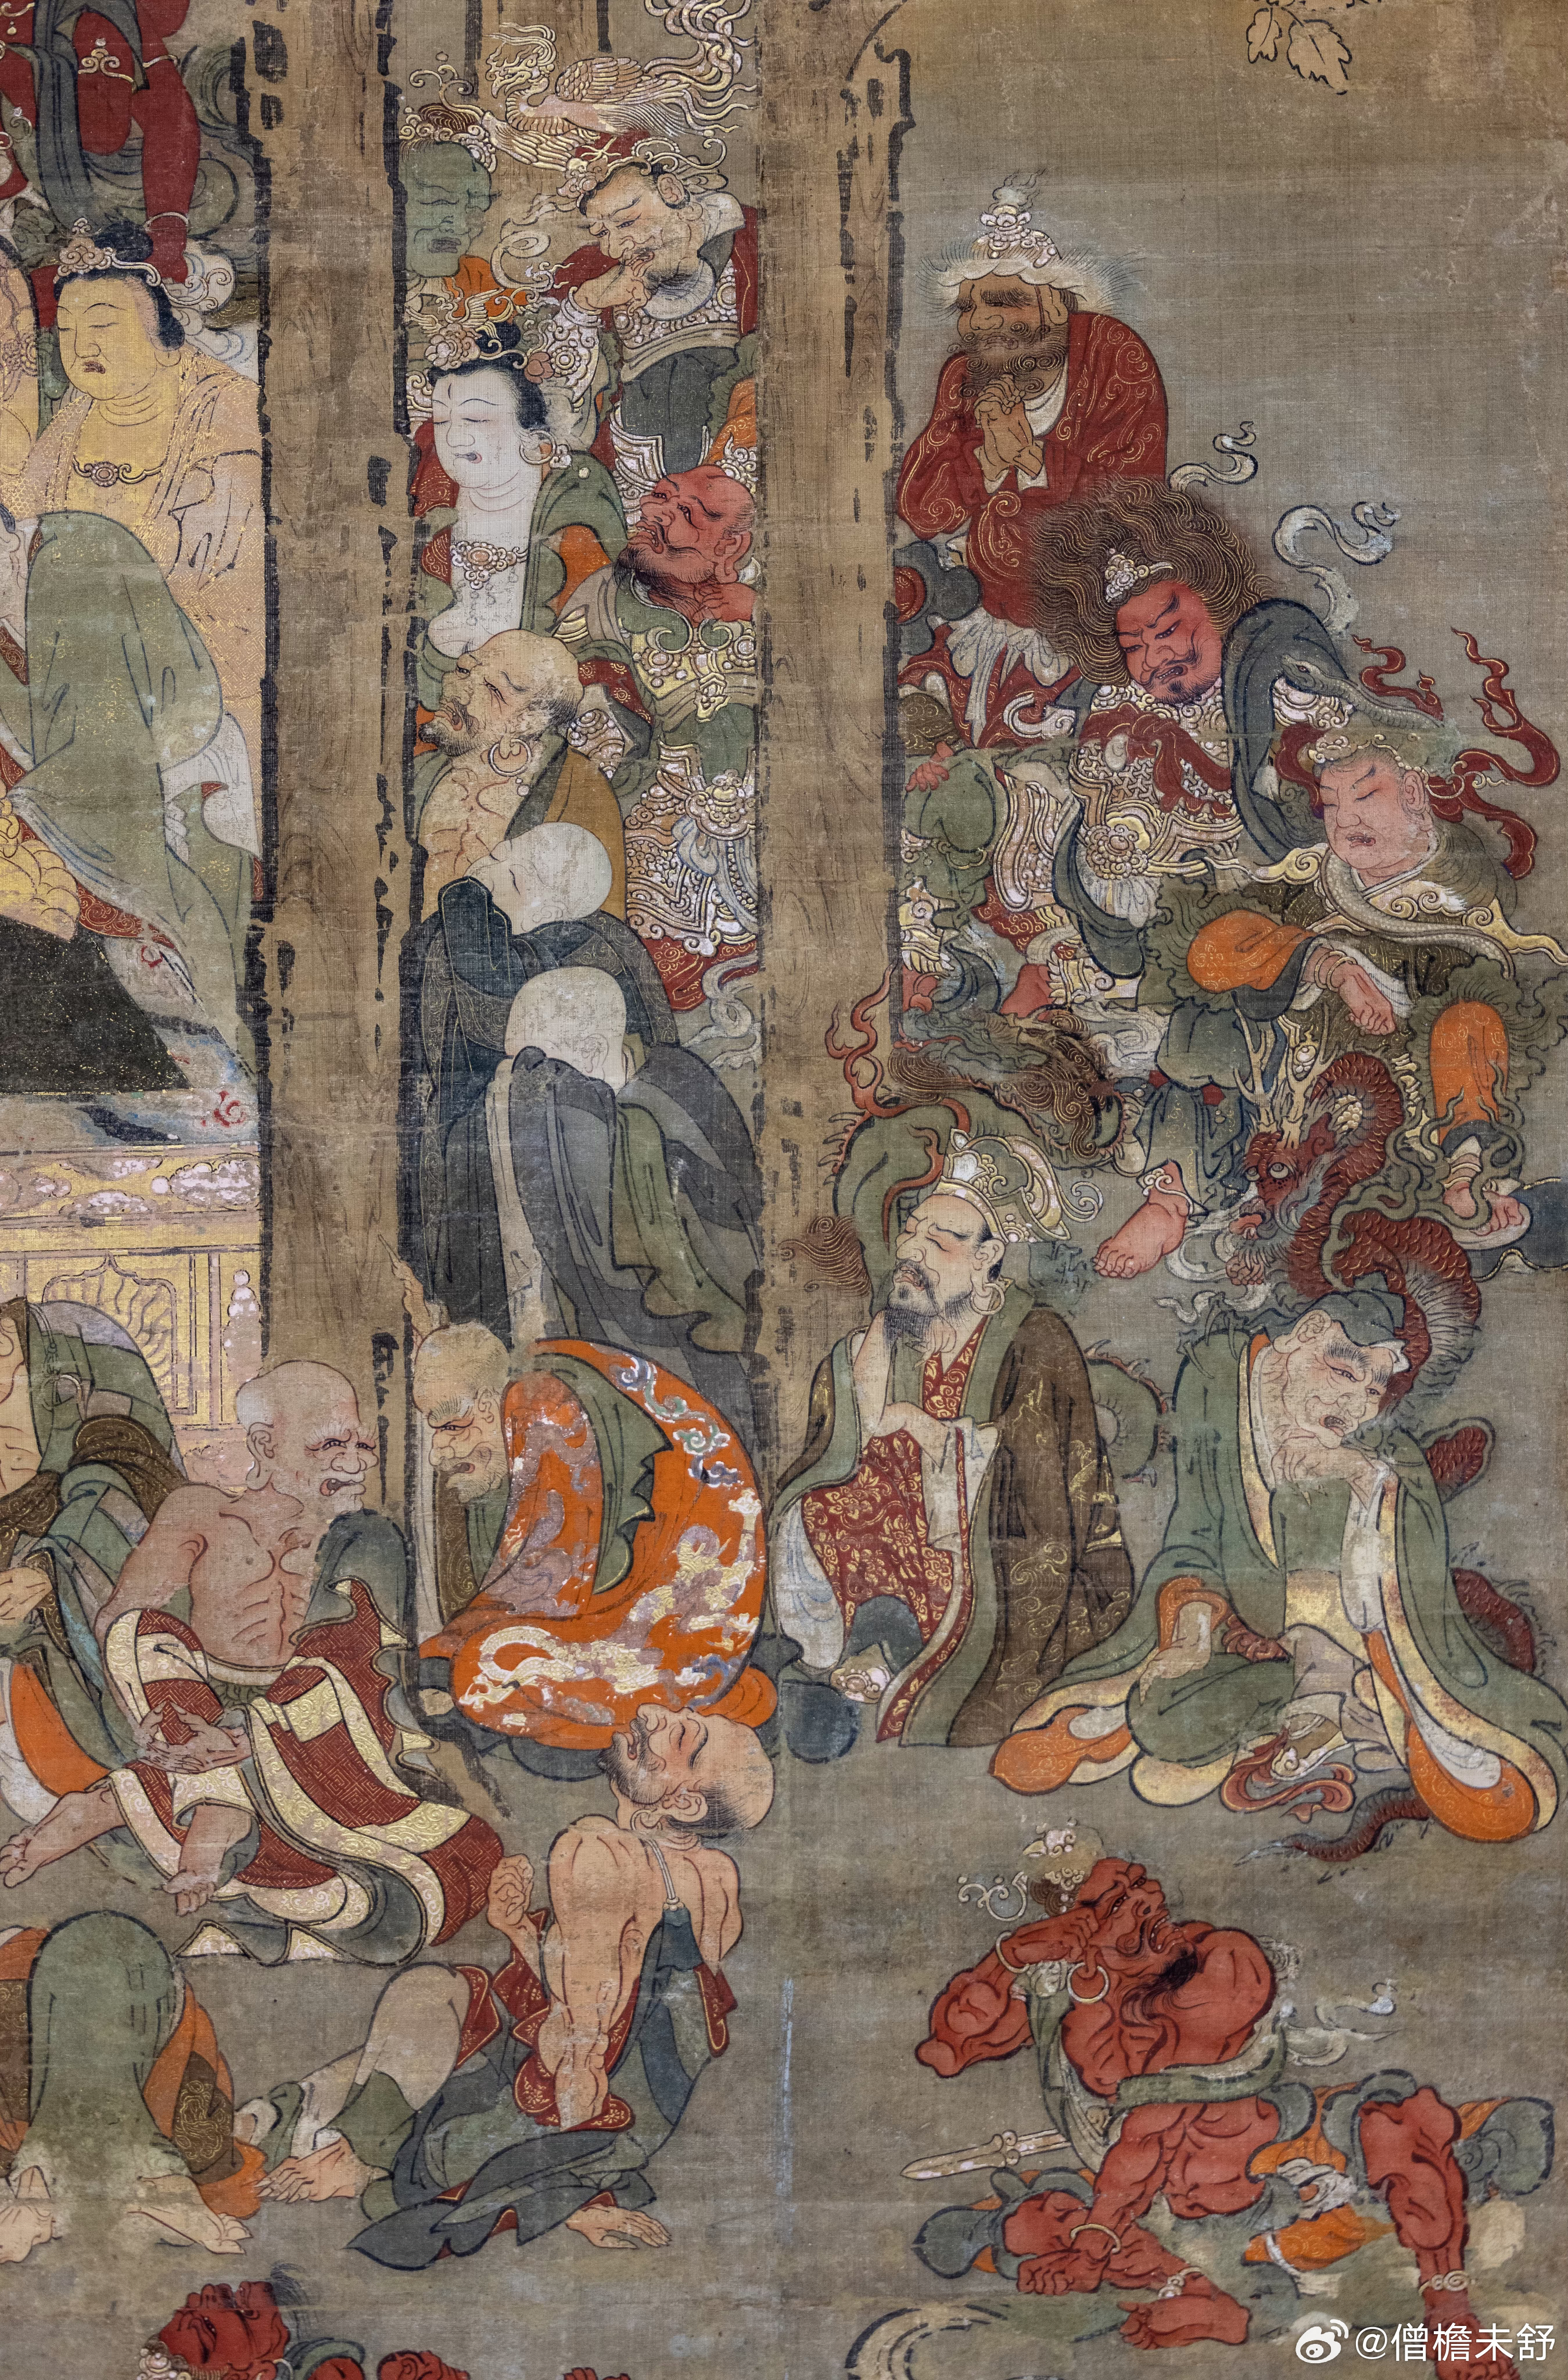 @僧檐未舒